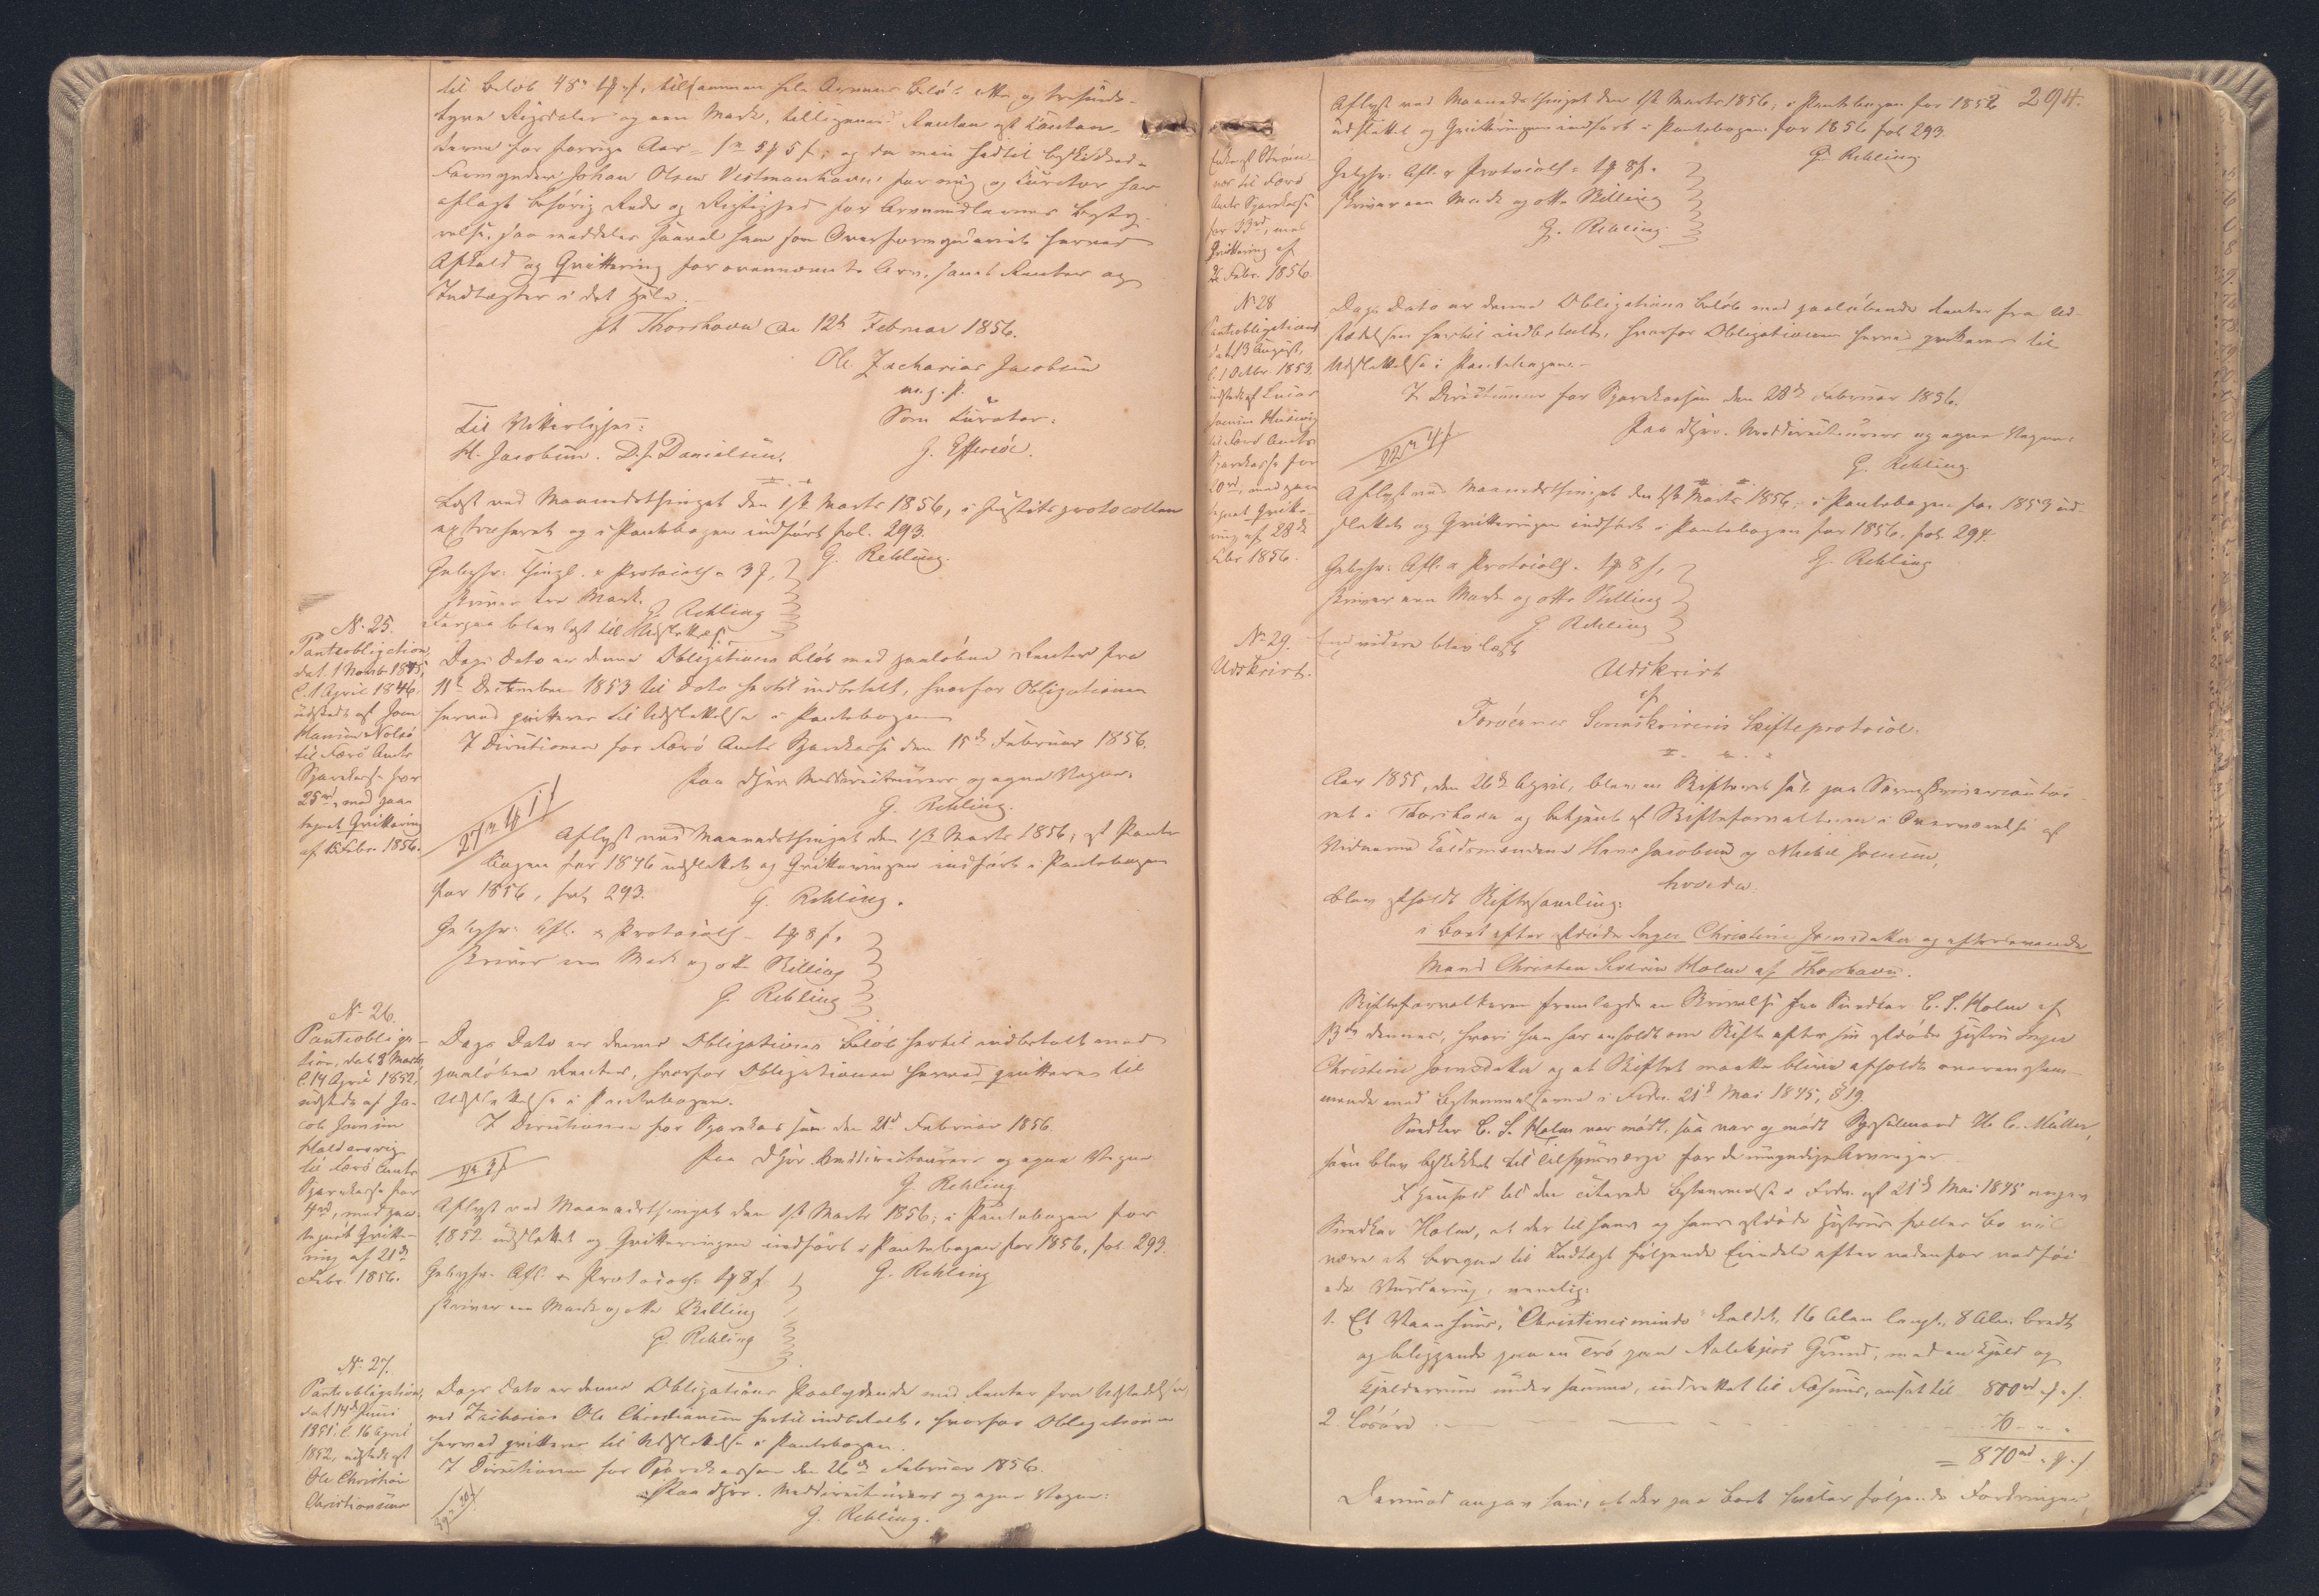 til Beløb 48 rd tilsammen hele Arvens Beløb otte og tresinds-
tyve Rigsdaler og een Mark, tilligemed Renten af Contan-
terne for forrige Aar og da min hidtil beskikkede
Formynder Johan Olsen Vestmanhavn for mig og Curator har
aflagt behørig Rede og Rigtighed for Arvemidlernes Besty-
relse, saa meddeles saavel ham som Overformynderiet herved
Afkald og Qvittering for ovennævnte Arv, samt Renter og
Indtægter i det Hele.
pt Thorshavn den 12te Februar 1856.
Ole Zacharias Jacobsen
m. f. P.
Til Vitterlighed: Som Curator:
H. Jacobsen. D. J. Danielsen. G. Effersøe.
Læst ved Maanedsthinget den 1ste Marts 1856, i Justitsprotocollen
extraheret og i Pantebogen indført fol. 293.
G. Rehling.
Gebyhr: Thingl. & Protocoll.
skriver tre Mark.
G. Rehling
Derpaa blev læst til Udslettelse:
No 25.
Pantobligation,
dat. 1 Novbr 1845,
l. 1 April 1846,
udstedt af Joen
Hansen Nolsø
til Færø Amts
Sparekasse for
25 rd, med paa-
tegnet Qvittering
af 15 Febr. 1856.
Dags Dato er denne Obligations Beløb med paaløbne Renter fra
11te December 1853 til Dato hertil indbetalt, hvorfor Obligationen
herved qvitteres til Udslettelse i Pantebogen
I Directionen for Færø Amts Sparekasse den 15de Februar 1856.
Paa Hrr. Meddirecteurers og egne Vegne.
G. Rehling.
Aflyst ved Maanedsthinget den 1ste Marts 1856, af Pante-
bogen for 1846 udslettet og Qvitteringen indført i Pantebogen
for 1856, fol. 293.
G. Rehling.
Gebyhr: Afl. & Protocoll.
skriver een Mark og otte Skilling
G. Rehling
No 26.
Pantobliga-
tion, dat. 8 Marts,
l. 14 April 1852,
udstedt af Ja-
cob Joensen
Haldersvig
til Færø Amts
Sparekasse for
rd, med paa-
tegnet Qvitte-
ring af 21de
Febr. 1856.
Dags Dato er denne Obligations Beløb hertil indbetalt med
paaløbne Renter, hvorfor Obligationen herved qvitteres til
Udslettelse i Pantebogen.
I Directionen for Sparekassen den 21de Februar 1856.
Paa Hrr. Meddirecteurers og egne Vegne
G. Rehling
Aflyst ved Maanedsthinget den 1ste Marts 1856; i Pantebogen for
1852 udslettet og Qvitteringen indført i Pantebogen for 1856, fol. 293.
G. Rehling
Gebyhr. Afl. & Protocoll.
skriver een Mark og otte Skilling
G. Rehling
No 27.
Pantobligation,
dat 14de Juni
1851, l. 16 April
1852, udstedt af
Ole Christian
Christiansens
Dags Dato er denne Obligations Paalydende med Renter fra Udstedelsen
ved Zacharias Ole Christiansen hertil indbetalt, hvorfor Obligationen
herved qvitteres til Udslettelse i Pantebogen.
I Directionen for Sparekassen den 26de Februar 1856.
Paa Hrr. Meddirecteurers og egne Vegne:
G. Rehling.
294.
Enke af Strøm-
nes til Færø
Amts Sparekasse
for 33 rd, med
Qvittering af
26 Febr. 1856.
Aflyst ved Maanedsthinget den 1ste Marts 1856, i Pantebogen for 1852
udslettet og Qvitteringen indført i Pantebogen for 1856 fol 293.
G. Rehling
Gebyhr: Afl. & Protocoll.
skriver een Mark og otte Skilling
G. Rehling.
No 28
Pantobligation
dat 13 August,
l. 1 Octbr. 1853,
udstedt af Lucas
Joensen
til Færø Amts
Sparekasse for
20 rd, med paa-
tegnet Qvitte-
ring af 28de
Febr 1856.
Dags Dato er denne Obligations Beløb med paaløbende Renter fra Ud-
stedelsen hertil indbetalt, hvorfor Obligationen herved qvitteres til
Udslettelse i Pantebogen.
I Directionen for Sparekassen den 28de Februar 1856.
Paa Hrr. Meddirecteurers og egne Vegne:
G. Rehling.
Aflyst ved Maanedsthinget den 1ste Marts 1856, i Pantebogen for 1853 ud-
slettet og Qvitteringen indført i Pantebogen for 1856, fol. 294.
G. Rehling
Gebyhr: Afl. & Protocoll.
skriver een Mark og otte Skilling
G. Rehling
No 29.
Udskrift.
Endvidere blev læst
Udskrift
af
Færøernes Sorenskriveris Skifteprotocol.
Aar 1855, den 26de April, blev en Skifteret sat paa Sorenskrivercontoi-
ret i Thorshavn og betjent af Skifteforvalteren i Overværelse af
Vidnerne Hans Jacobsen og Michel Joensen,
hvorda:
blev afholdt Skiftesamling:
i Boet efter afdøde Inger Christine Joensdatter og efterlevende
Mand Christen Severin Holm af Thorshavn.
Skifteforvalteren fremlagde en Skrivelse fra Snedker C. S. Holm af
13de dennes, hvori han har anholdt om Skifte efter sin afdøde Hustru Inger
Christine Joensdatter og at Skiftet maatte blive afholdt overensstem-
mende med Bestemmelserne i Frdn. 21de Mai 1845, § 19.
Snedker C. S. Holm var mødt, saa var og mødt Sysselmand H. C. Müller,
som blev beskikket til Tilsynsværge for de umyndige Arvinger
I Henhold til den citerede Bestemmelse i Frdn. af 21de Mai 1845 angav
Snedker Holm, at der til hans og hans afdøde Hustrues fælles Bo vil
være at beregne til Indtægt følgende Eiendele efter nedenfor vedføi-
ede Vurdering, nemlig:
1. Et Vaanhuus, "Christinesminde" kaldet, 16 Alen langt, 8 Alen bredt
og beliggende paa en Trø paa Grund, med en Kjeld og
Kjelderrum under samme, indrettet til Fæhuus, ansat til 800 rd
2. Løsøre 70
= 870 rd
Derimod angav han, at der paa Boet hviler følgende Fordringer,